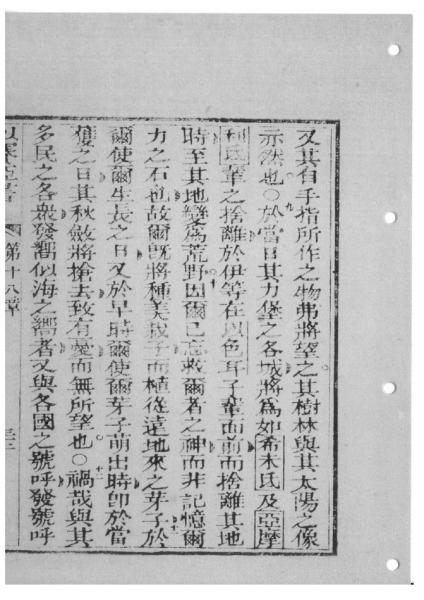 又其有手指所作之物弗將望之其樹林與其太陽之像
亦然也○九於當日其力堡之各城將爲如希未氏及亞摩
利氏輩之捨離於伊等在以色耳子輩面前而捨離其地
時至其地變爲荒野十因爾已忘救爾者之神而非記憶爾
力之石也故爾旣將種美栽子而植從遠地來之芽子於
爾使爾生長之日又於早時爾使爾芽子萌出時卽於當
獲之日其秋斂將搶去致有憂而無所望也○十二禍哉與其
多民之各衆發嚮似海之嚮者又與各國之號呼發號呼
第十八章